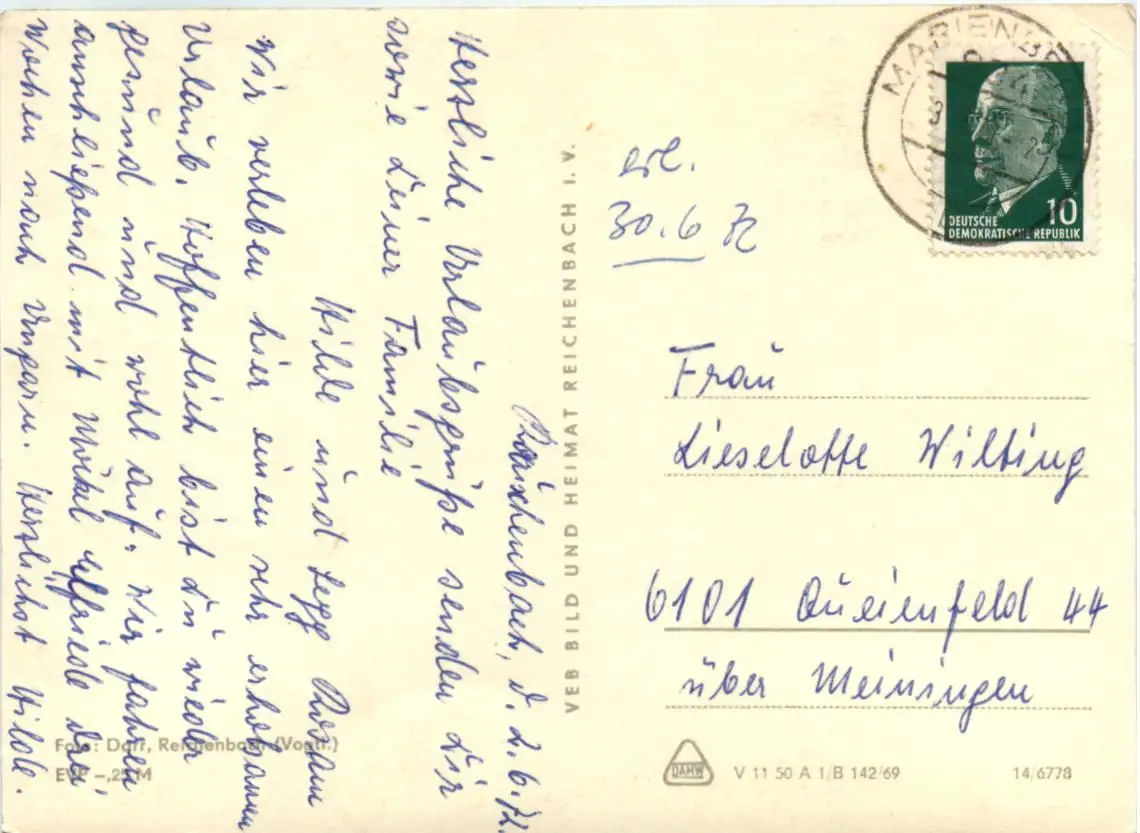 Rauschenbach, d. 2.6.72.
Herzliche Urlaubsgrüße senden Dir
sowie Deiner Familie
Hilde und Sepp
Wir verleben hier einen sehr erholsamen
Urlaub. Hoffentlich bist Du wieder
gesund und wohl auf. Wir fahren
anschließend mit Elfriede drei
Wochen nach Ungarn. Herzlichst Hilde.
Foto: Darr, Reichenbach (Vogtl.)
EVP –,25 M
VEB BILD UND HEIMAT REICHENBACH I. V.
MARIENB
DEUTSCHE
DEMOKRATISCHE REPUBLIK
10
erl.
30.6 72
Frau
Lieselotte Wilting
6101 Queienfeld 44
über Meiningen
DAMW
V 11 50 A 1/B 142/69
14/6778